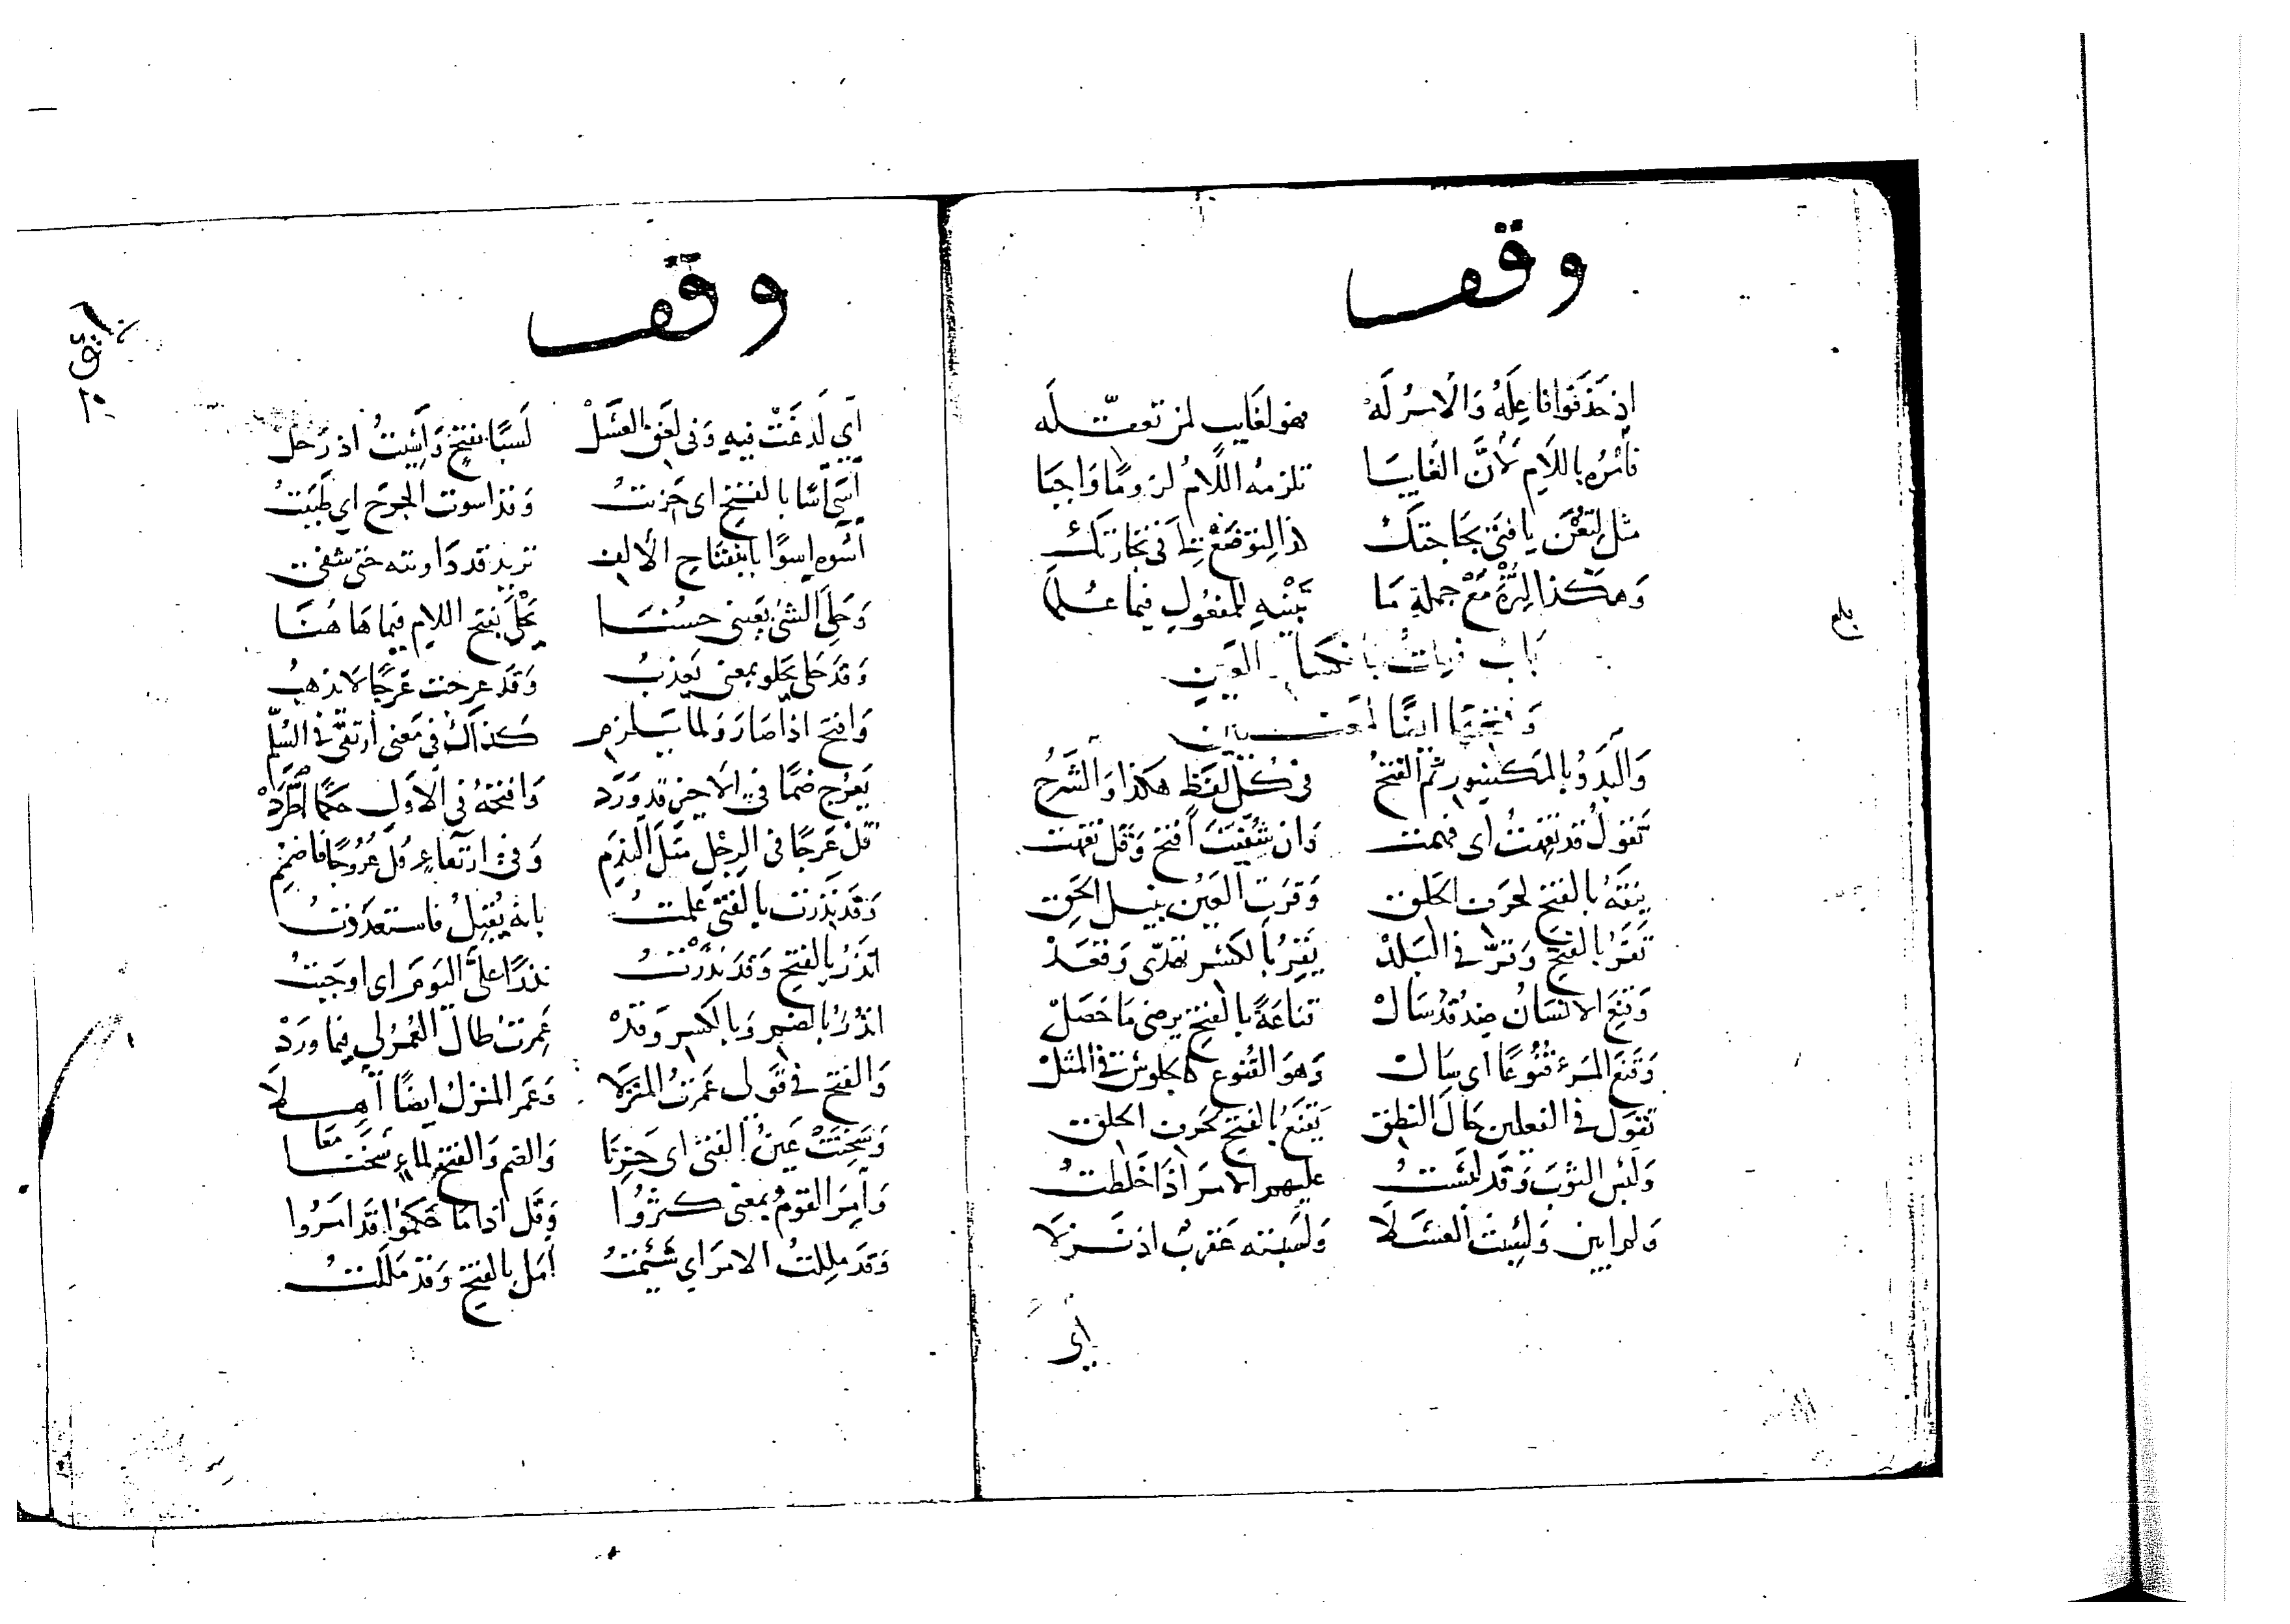 وقف
إذ حذفوا فاعله والأمر له فهو لغايب لمن تعقله
فأمره باللام لأن الغايبا تلزمه اللام لزوما واجبا
مثل لتعن يا فتى بحاجتك كذا لتوضع في تجارتك
وهكذا لتزه مع جملة ما تبنيه للمفعول فيما علما
باب فعلت بانكسار العين
وفتحها ايضا لمعنيين
والبدو بالمكسور ثم الفتح في كل لفظ هكذا والشرح
تقول قد نقهت اي فهمت وان شفيت افتح وقل نقهت
ينقه بالفتح لحرف الحلق وقرت العين بنيل الحق
تقر بالفتح وقر في البلد يقر بالكسر تقدى وقعد
وقنع الانسان ضد قد سال قناعة بالفتح يرضى ما حصل
وقنع المرء قنوعا اي سال وهو القنوع كالجلوس في المثل
تقول في الفعلين حال النطق يقنع بالفتح لحرف الحلق
ولبس الثوب وقد لبست عليهم الامر اذا خلطت
ولم ابين ولسبت العسلا ولسبته عقرب اذ نزلا
أي
وقف
أي لدغت فيه وفي لعق العسل لسبا بفتح وأسيت اذ رحل
آسى أسا بالفتح اي حزنت وقد اسوت الجرح اي طببت
آسوه اسوا بانفتاح الألف تريد قد داويته حتى شفي
وحلي الشئ بعيني حسنا يحلى بفتح اللام فيما هاهنا
وقد حلى يحلو بمعنى يعذب وقد عرجت عرجا لا يذهب
وافتح اذا صار ولما يلزم كذاك في معنى ارتقى في السلم
يعرج ضما في الاخير قد ورد وافتحه في الأول حكما اطرد
قل عرجا في الرجل مثل الندم وفي ارتفاع قل عروجا فاضمم
وقد نذرت يا فتى علمت بانه يقبل فاستعددت
انذر بالفتح وقد نذرت نذرا علي اليوم اي اوجبت
انذر بالضم وبالكسر وقد عمرت طال العمر لي فيما ورد
والفتح في قول عمرت المنزلا وعمر المنزل ايضا اهلا
وسخنت عين الفتى اي حزنا والضم والفتح لماء سخنا معا
وامر القوم بمعنى كثروا وقل اذا ما حكموا قد امروا
وقد مللت الامر اي سئمت امل بالفتح وقد مللت